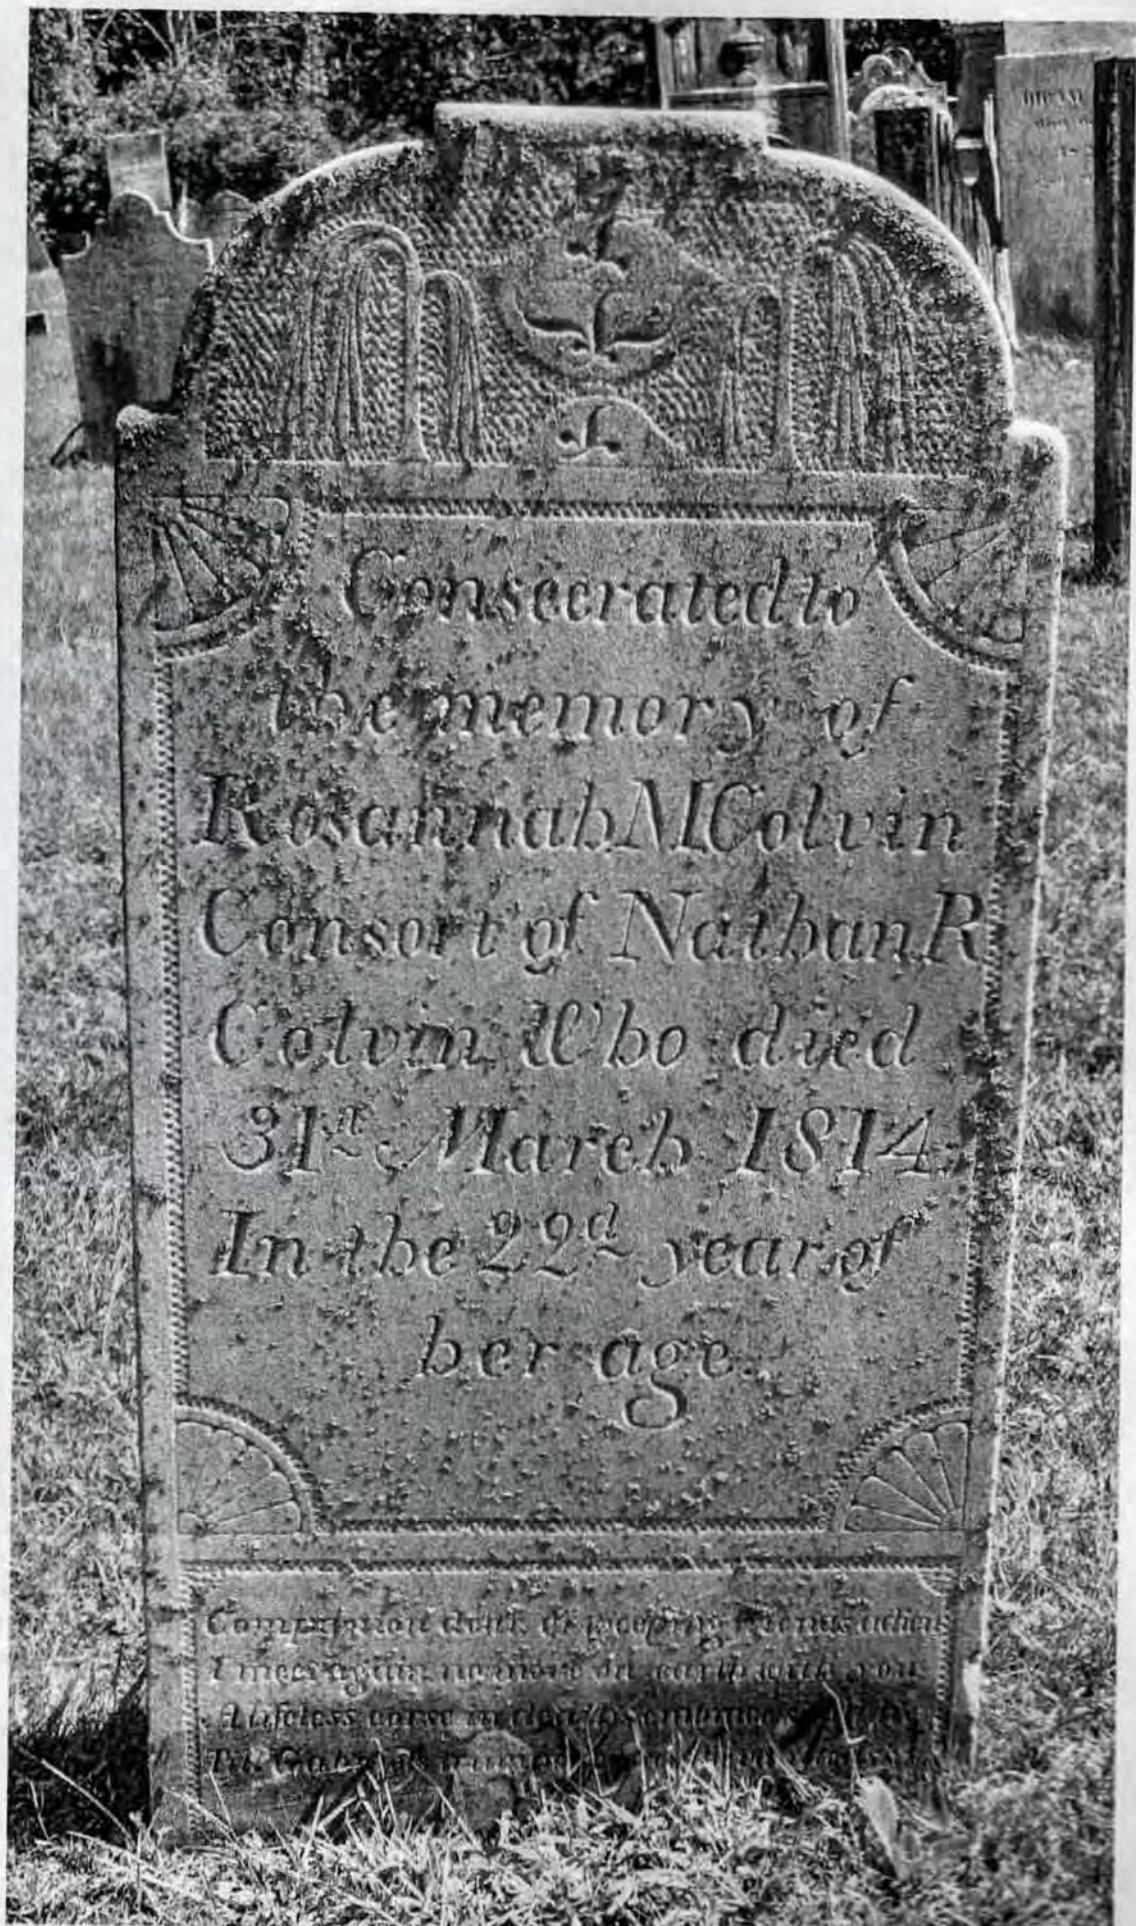 Consecrated to
the memory of
Rosannah M Colvin
Consort of Nathan R
Colvin Who died
31st March 1814.
In the 22d year of
her age
Companion dear, & weeping friends adieu
I meet again no more on earth with you
A lifeless corse in death's embraces
Till